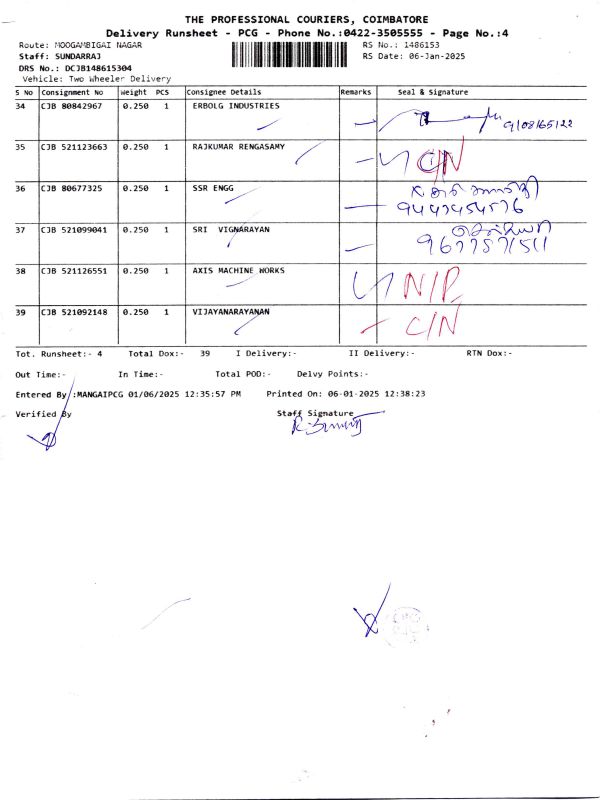 THE PROFESSIONAL COURIERS, COIMBATORE
Delivery Runsheet - PCG - Phone No.:0422-3505555 - Page No.:4
Route: MOOGAMBIGAI NAGAR RS No.: 1486153
Staff: SUNDARRAJ RS Date: 06-Jan-2025
DRS No.: DCJB148615304
Vehicle: Two Wheeler Delivery
S No Consignment No Weight PCS Consignee Details Remarks Seal & Signature
34 CJB 80842967 0.250 1 ERBOLG INDUSTRIES 9108165122
35 CJB 521123663 0.250 1 RAJKUMAR RENGASAMY C/N
36 CJB 80677325 0.250 1 SSR ENGG
9447454576
37 CJB 521099041 0.250 1 SRI VIGNARAYAN
9677571511
38 CJB 521126551 0.250 1 AXIS MACHINE WORKS N/P
39 CJB 521092148 0.250 1 VIJAYANARAYANAN C/N
Tot. Runsheet:- 4 Total Dox:- 39 I Delivery:- II Delivery:- RTN Dox:-
Out Time:- In Time:- Total POD:- Delvy Points:-
Entered By :MANGAIPCG 01/06/2025 12:35:57 PM Printed On: 06-01-2025 12:38:23
Verified By Staff Signature